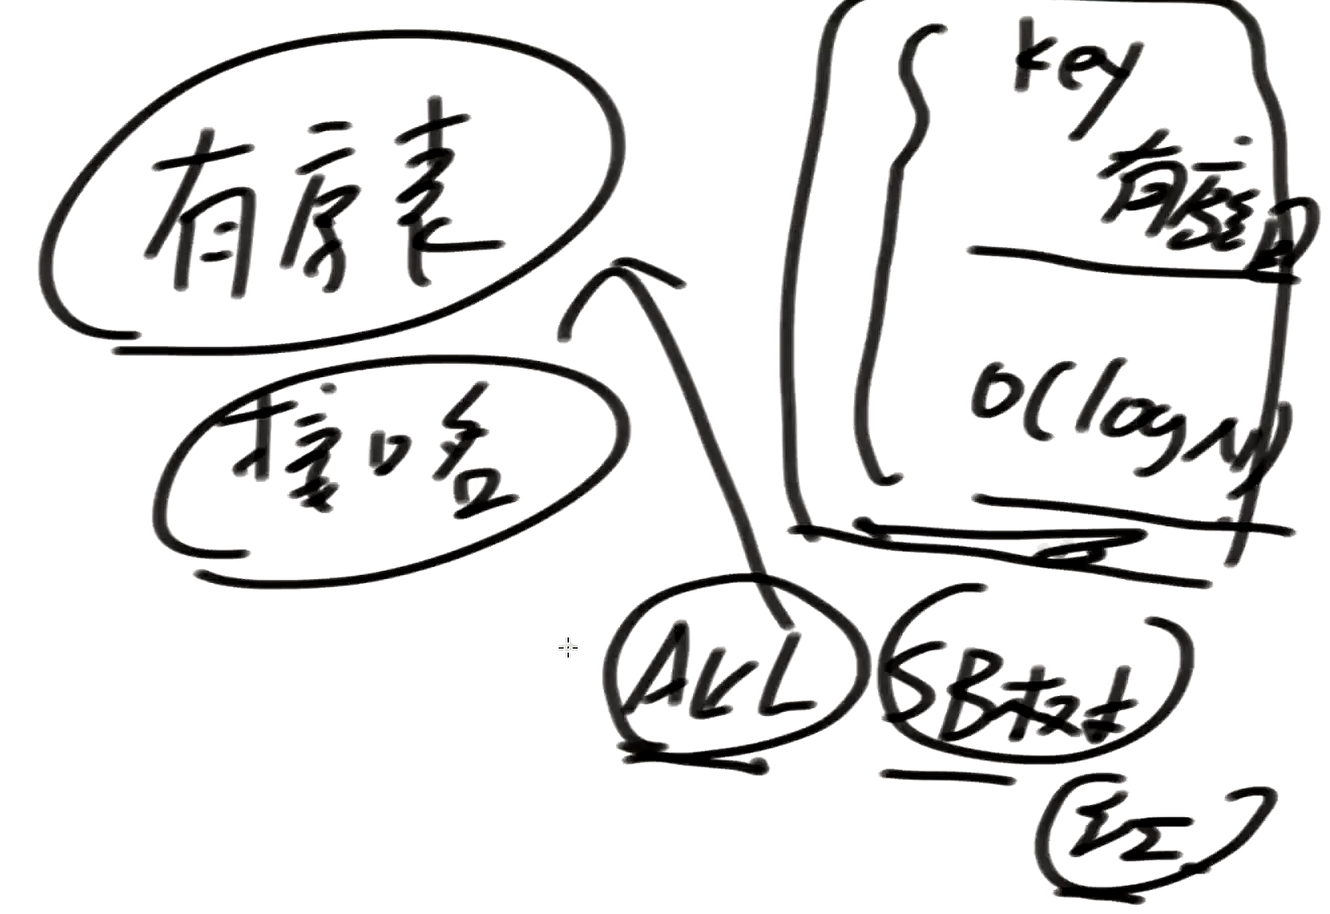 有序表
接口
key
有序
O(logN)
AVL
SB树
红